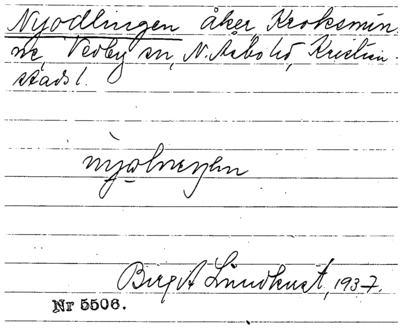 Nyodlingen åker Kroksmin-
ne, Vedby sn, N. Åsbo hd, Kristian-
stads l.
Birgit Lindkvist, 1937.
Nr 5506.